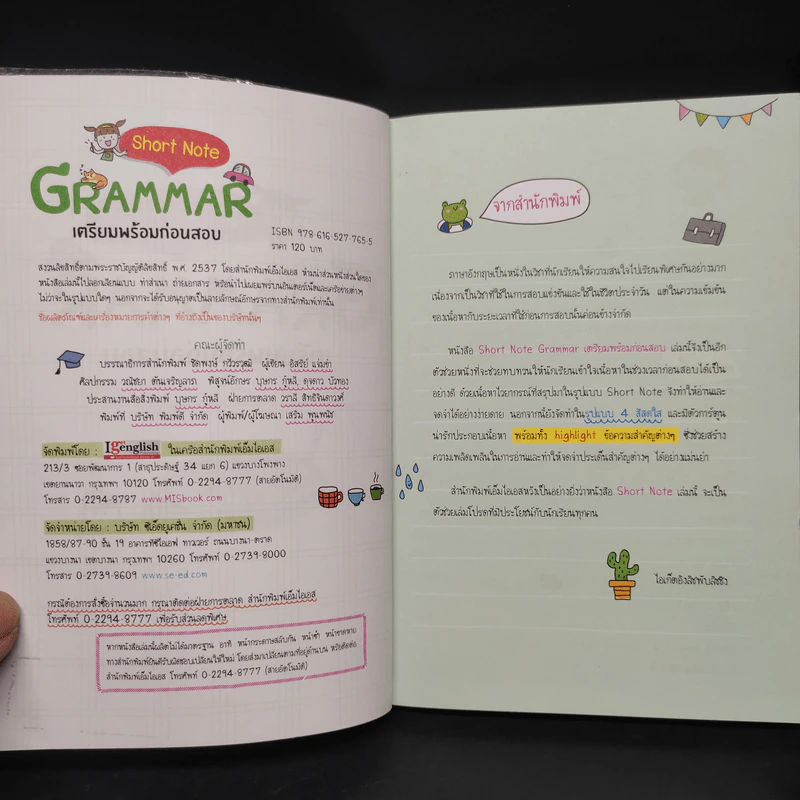 Short Note
GRAMMAR
เตรียมพร้อมก่อนสอบ
ISBN 978-616-527-765-5
ราคา 120 บาท
สงวนลิขสิทธิ์ตามพระราชบัญญัติลิขสิทธิ์ พ.ศ. 2537 โดยสำนักพิมพ์เอ็มไอเอส ห้ามนำส่วนหนึ่งส่วนใดของ
หนังสือเล่มนี้ไปลอกเลียนแบบ ทำสำเนา ถ่ายเอกสาร หรือนำไปเผยแพร่บนอินเตอร์เน็ตและเครือข่ายต่างๆ
ไม่ว่าจะในรูปแบบใดๆ นอกจากจะได้รับอนุญาตเป็นลายลักษณ์อักษรจากทางสำนักพิมพ์เท่านั้น
ชื่อผลิตภัณฑ์และเครื่องหมายการค้าต่างๆ ที่อ้างถึงเป็นของบริษัทนั้นๆ
คณะผู้จัดทำ
บรรณาธิการสำนักพิมพ์ ชิดพงษ์ กวีวรวุฒิ ผู้เขียน อิสรีย์ แจ่มขำ
ศิลปกรรม วณิชยา ตันเจริญลาภ พิสูจน์อักษร บุษกร กู้หลี ดุจดาว บัวทอง
ประสานงานสื่อสิ่งพิมพ์ บุษกร กู้หลี ฝ่ายการตลาด วราลี สิทธิจินดาวงศ์
พิมพ์ที่ บริษัท พิมพ์ดี จำกัด ผู้พิมพ์/ผู้โฆษณา เสริม พูนพนิช
จัดพิมพ์โดย : Igenglish ในเครือสำนักพิมพ์เอ็มไอเอส
213/3 ซอยพัฒนาการ 1 (สาธุประดิษฐ์ 34 แยก 6) แขวงบางโพงพาง
เขตยานนาวา กรุงเทพฯ 10120 โทรศัพท์ 0-2294-8777 (สายอัตโนมัติ)
โทรสาร 0-2294-8787 www.MISbook.com
จัดจำหน่ายโดย : บริษัท ซีเอ็ดยูเคชั่น จำกัด (มหาชน)
1858/87-90 ชั้น 19 อาคารทีซีไอเอฟ ทาวเวอร์ ถนนบางนา-ตราด
แขวงบางนา เขตบางนา กรุงเทพฯ 10260 โทรศัพท์ 0-2739-8000
โทรสาร 0-2739-8609 www.se-ed.com
กรณีต้องการสั่งซื้อจำนวนมาก กรุณาติดต่อฝ่ายการตลาด สำนักพิมพ์เอ็มไอเอส
โทรศัพท์ 0-2294-8777 เพื่อรับส่วนลดพิเศษ
หากหนังสือเล่มนี้ผลิตไม่ได้มาตรฐาน อาทิ หน้ากระดาษสลับกัน หน้าซ้ำ หน้าขาดหาย
ทางสำนักพิมพ์ยินดีรับผิดชอบเปลี่ยนให้ใหม่ โดยส่งมาเปลี่ยนตามที่อยู่ด้านบน หรือติดต่อ
สำนักพิมพ์เอ็มไอเอส โทรศัพท์ 0-2294-8777 (สายอัตโนมัติ)
จากสำนักพิมพ์
ภาษาอังกฤษเป็นหนึ่งในวิชาที่นักเรียนให้ความสนใจไปเรียนพิเศษกันอย่างมาก
เนื่องจากเป็นวิชาที่ใช้ในการสอบแข่งขันและใช้ในชีวิตประจำวัน แต่ในความเข้มข้น
ของเนื้อหากับระยะเวลาที่ใช้ก่อนการสอบนั้นค่อนข้างจำกัด
หนังสือ Short Note Grammar เตรียมพร้อมก่อนสอบ เล่มนี้จึงเป็นอีก
ตัวช่วยหนึ่งที่จะช่วยทบทวนให้นักเรียนเข้าใจเนื้อหาในช่วงเวลาก่อนสอบได้เป็น
อย่างดี ด้วยเนื้อหาไวยากรณ์ที่สรุปมาในรูปแบบ Short Note จึงทำให้อ่านและ
จดจำได้อย่างง่ายดาย นอกจากนี้ยังจัดทำในรูปแบบ 4 สีสดใส และมีตัวการ์ตูน
น่ารักประกอบเนื้อหา พร้อมทั้ง highlight ข้อความสำคัญต่างๆ ซึ่งช่วยสร้าง
ความเพลิดเพลินในการอ่านและทำให้จดจำประเด็นสำคัญต่างๆ ได้อย่างแม่นยำ
สำนักพิมพ์เอ็มไอเอสหวังเป็นอย่างยิ่งว่าหนังสือ Short Note เล่มนี้ จะเป็น
ตัวช่วยเล่มโปรดที่มีประโยชน์กับนักเรียนทุกคน
ไอเก็ตอิงลิชพับลิชชิง